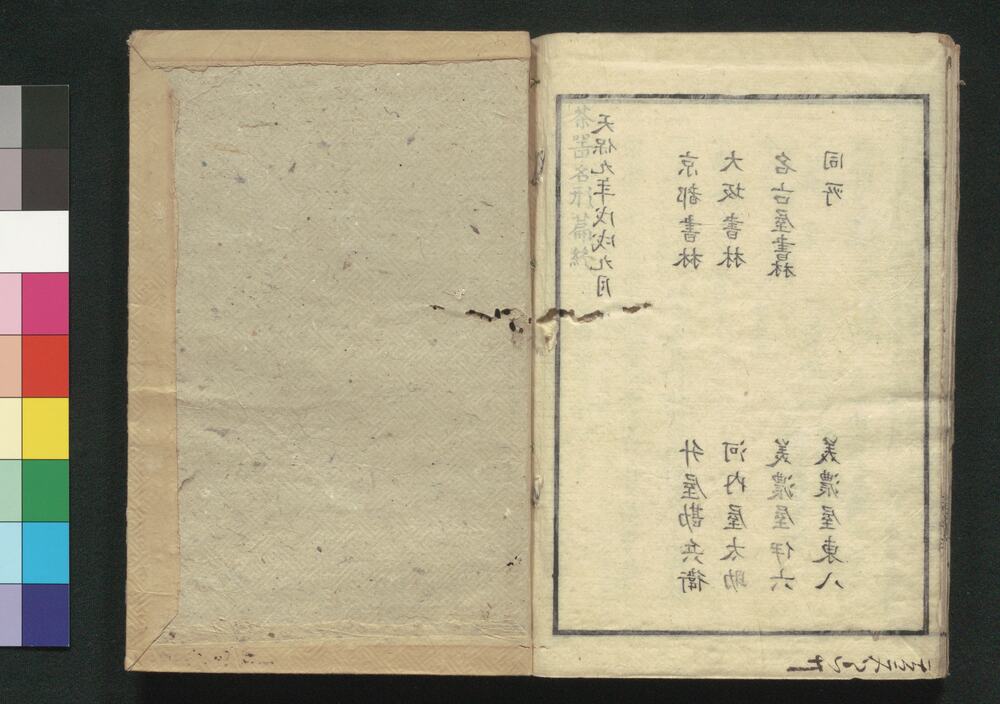 茶器名形篇終
天保九年戊戌九月
京都書林 升屋勘兵衛
大坂書林 河内屋太助
名古屋書林 美濃屋伊六
同所 美濃屋東八